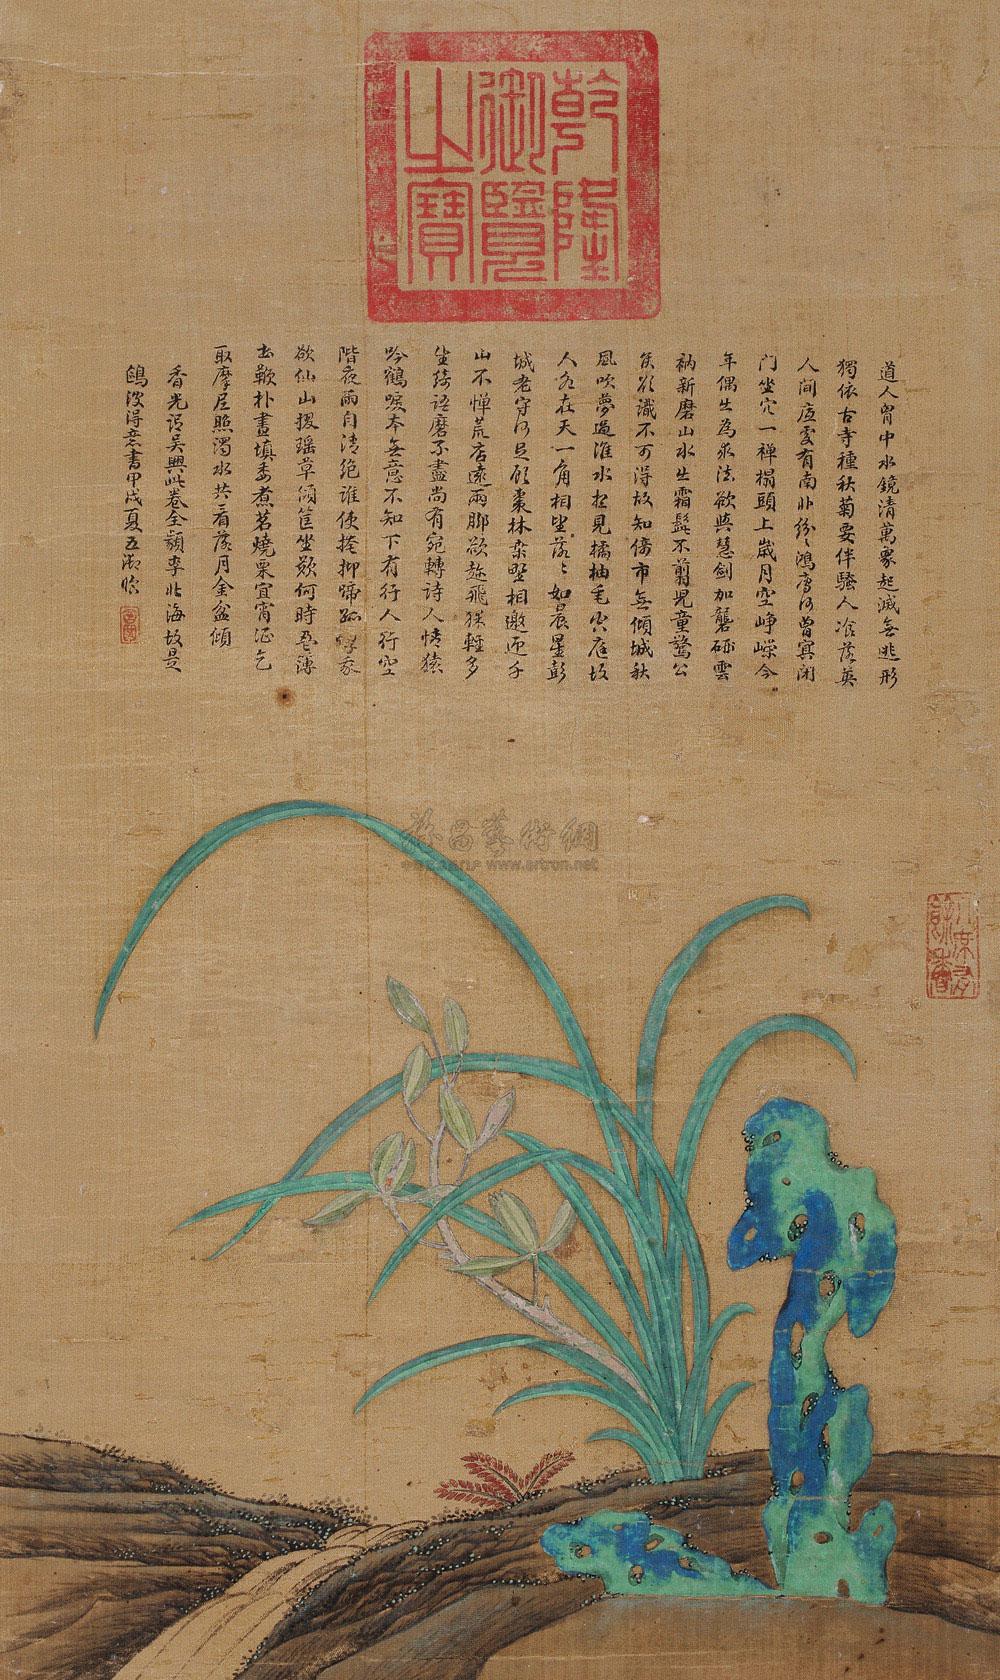 乾隆
御覽
之寶
道人胷中水鏡清萬象起滅無逃形
獨依古寺種秋菊要伴騷人飡落英
人間底處有南北紛〻鴻雁何曾冥閉
门坐穴一禪榻頭上歲月空崢嶸今
年偶出為求法欲與慧劍加礱硎雲
衲新磨山水出霜髭不翦兒童驚公
矦欲識不可得故知倚市無傾城秋
風吹夢過淮水想見橘柚垂空庭故
人各在天一角相望落〻如晨星彭
城老守何足顧棗林桑野相邀迎千
山不憚荒店遠兩脚欲趂飛猱輕多
生綺語磨不盡尚有宛轉詩人情猿
吟鶴唳本無意不知下有行人行空
階夜雨自清絕誰使掩抑啼孤惸我
欲仙山掇瑤草傾筐坐歎何時盈簿
書鞭朴晝填委煮茗燒栗宜宵征乞
取摩尼照濁水共看落月金盆傾
香光謂吳興此卷全類李北海故是
鷗波得意書甲戌夏五瀚臨
www.artron.net